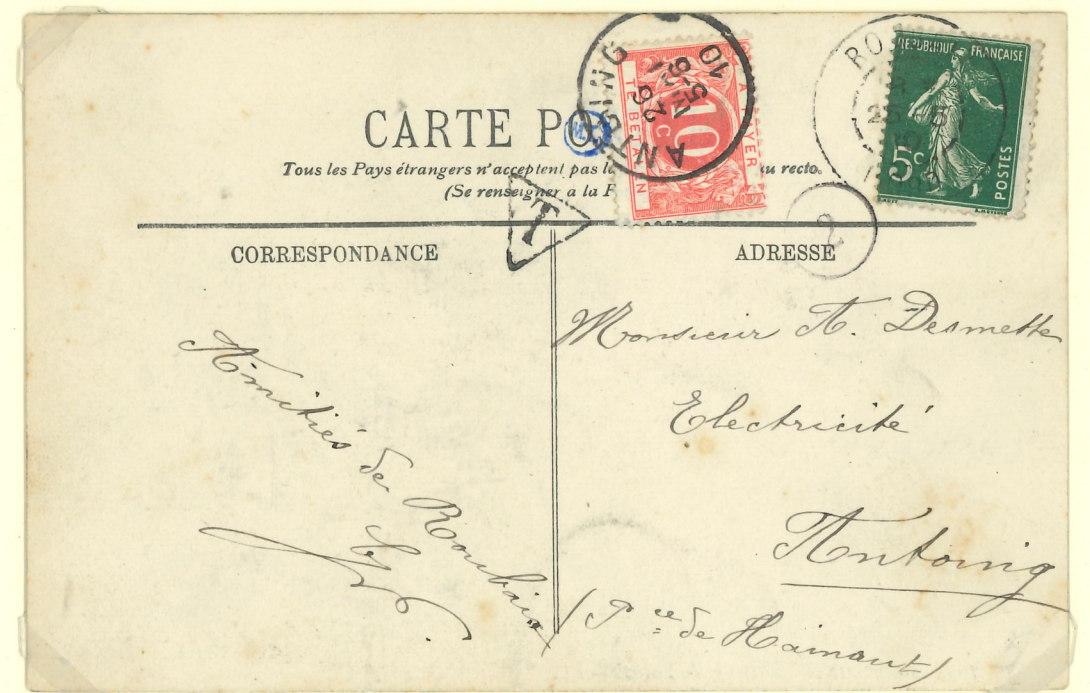 CARTE PO
Tous les Pays étrangers n'acceptent pas l
u recto.
(Se renseigner a la P
ANTOING
26
5-6
10
A PAYER
TE BETALEN
10
c
RO
REPUBLIQUE FRANÇAISE
5c
POSTES
T
2
CORRESPONDANCE
ADRESSE
Amitiés de Roubaix
Monsieur A. Desmette
Electricité
Antoing
(Pce de Hainaut)